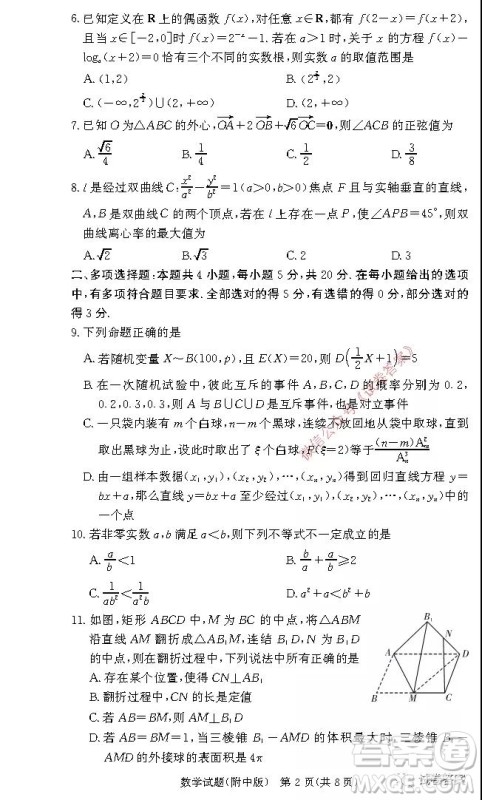 6. 已知定义在 R 上的偶函数 f(x),对任意 x∈R,都有 f(2-x)=f(x+2),
且当 x∈[-2,0]时 f(x)=2⁻ˣ-1. 若在 a>1 时,关于 x 的方程 f(x)-
logₐ(x+2)=0 恰有三个不同的实数根,则实数 a 的取值范围是
A. (1,2)
B. (2^{2/3},2)
C. (-∞,2^{2/3})∪(2,+∞)
D. (2,+∞)
7. 已知 O 为△ABC 的外心,OA+2OB+√6OC=0,则∠ACB 的正弦值为
A. √6/4
B. 1/4
C. 1/2
D. 3/8
8. l 是经过双曲线 C:x²/a²-y²/b²=1(a>0,b>0)焦点 F 且与实轴垂直的直线,
A,B 是双曲线 C 的两个顶点,若在 l 上存在一点 P,使∠APB=45°,则双
曲线离心率的最大值为
A. √2
B. √3
C. 2
D. 3
二、多项选择题:本题共 4 小题,每小题 5 分,共 20 分. 在每小题给出的选项
中,有多项符合题目要求. 全部选对的得 5 分,有选错的得 0 分,部分选对的
得 3 分.
9. 下列命题正确的是
A. 若随机变量 X~B(100,p),且 E(X)=20,则 D(1/2X+1)=5
B. 在一次随机试验中,彼此互斥的事件 A,B,C,D 的概率分别为 0.2,
0.2,0.3,0.3,则 A 与 B∪C∪D 是互斥事件,也是对立事件
C. 一只袋内装有 m 个白球,n-m 个黑球,连续不放回地从袋中取球,直到
取出黑球为止,设此时取出了 ξ 个白球,P(ξ=2)等于(n-m)A²ₘ/A³ₙ
D. 由一组样本数据(x₁,y₁),(x₂,y₂),…,(xₙ,yₙ)得到回归直线方程 y=
bx+a,那么直线 y=bx+a 至少经过(x₁,y₁),(x₂,y₂),…,(xₙ,yₙ)中的
一个点
10. 若非零实数 a,b 满足 a<b,则下列不等式不一定成立的是
A. a/b<1
B. b/a+a/b≥2
C. 1/ab²<1/a²b
D. a²+a<b²+b
11. 如图,矩形 ABCD 中,M 为 BC 的中点,将△ABM
沿直线 AM 翻折成△AB₁M,连结 B₁D,N 为 B₁D
的中点,则在翻折过程中,下列说法中所有正确的是
A. 存在某个位置,使得 CN⊥AB₁
B. 翻折过程中,CN 的长是定值
C. 若 AB=BM,则 AM⊥B₁D
D. 若 AB=BM=1,当三棱锥 B₁-AMD 的体积最大时,三棱锥 B₁-
AMD 的外接球的表面积是 4π
B₁
N
A
D
B
M
C
数学试题(附中版) 第 2 页(共 8 页)